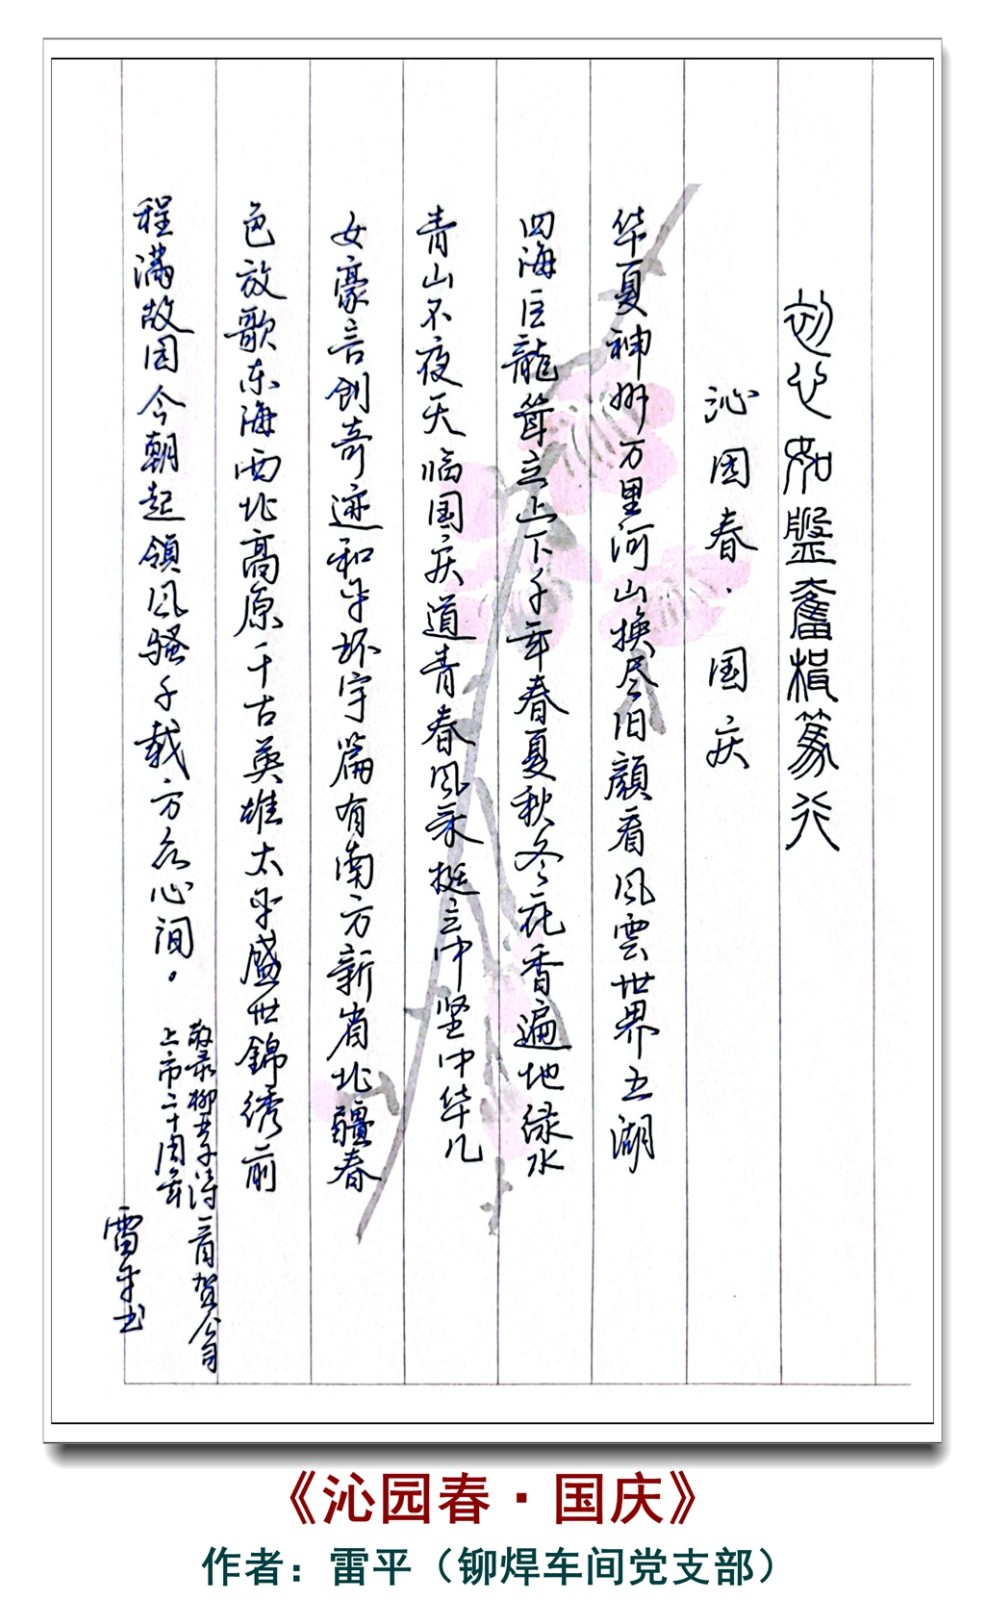 初心如磐奮楫篤行
沁园春·国庆
华夏神州万里河山换尽旧顔看风雲世界五湖
四海巨龍耸立上下千年春夏秋冬花香遍地绿水
青山不夜天临国庆道青春风采挺立中坚中华儿
女豪言创奇迹和平环宇篇有南方新省北疆春
色放歌东海西北高原千古英雄太平盛世錦绣前
程满故园今朝起領风骚千载方名心间。
敬录柳井子诗一首贺公司
上市二十周年
雷平书
《沁园春·国庆》
作者：雷平（铆焊车间党支部）